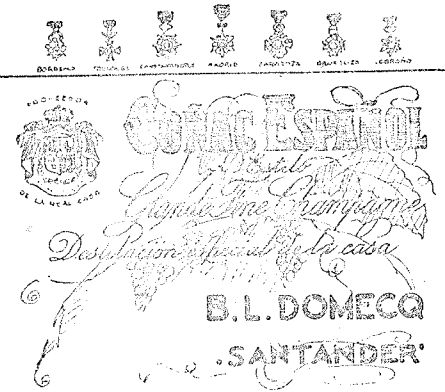 BURDEOS TOULOUSE CONSTANTINOPLA MADRID ZARAGOZA BRUSELAS LOGROÑO
PROVEEDOR
DE LA REAL CASA
COÑAC ESPAÑOL
Estilo
Grande Fine Champagne
Destilación especial de la casa
B. L. DOMECQ
SANTANDER